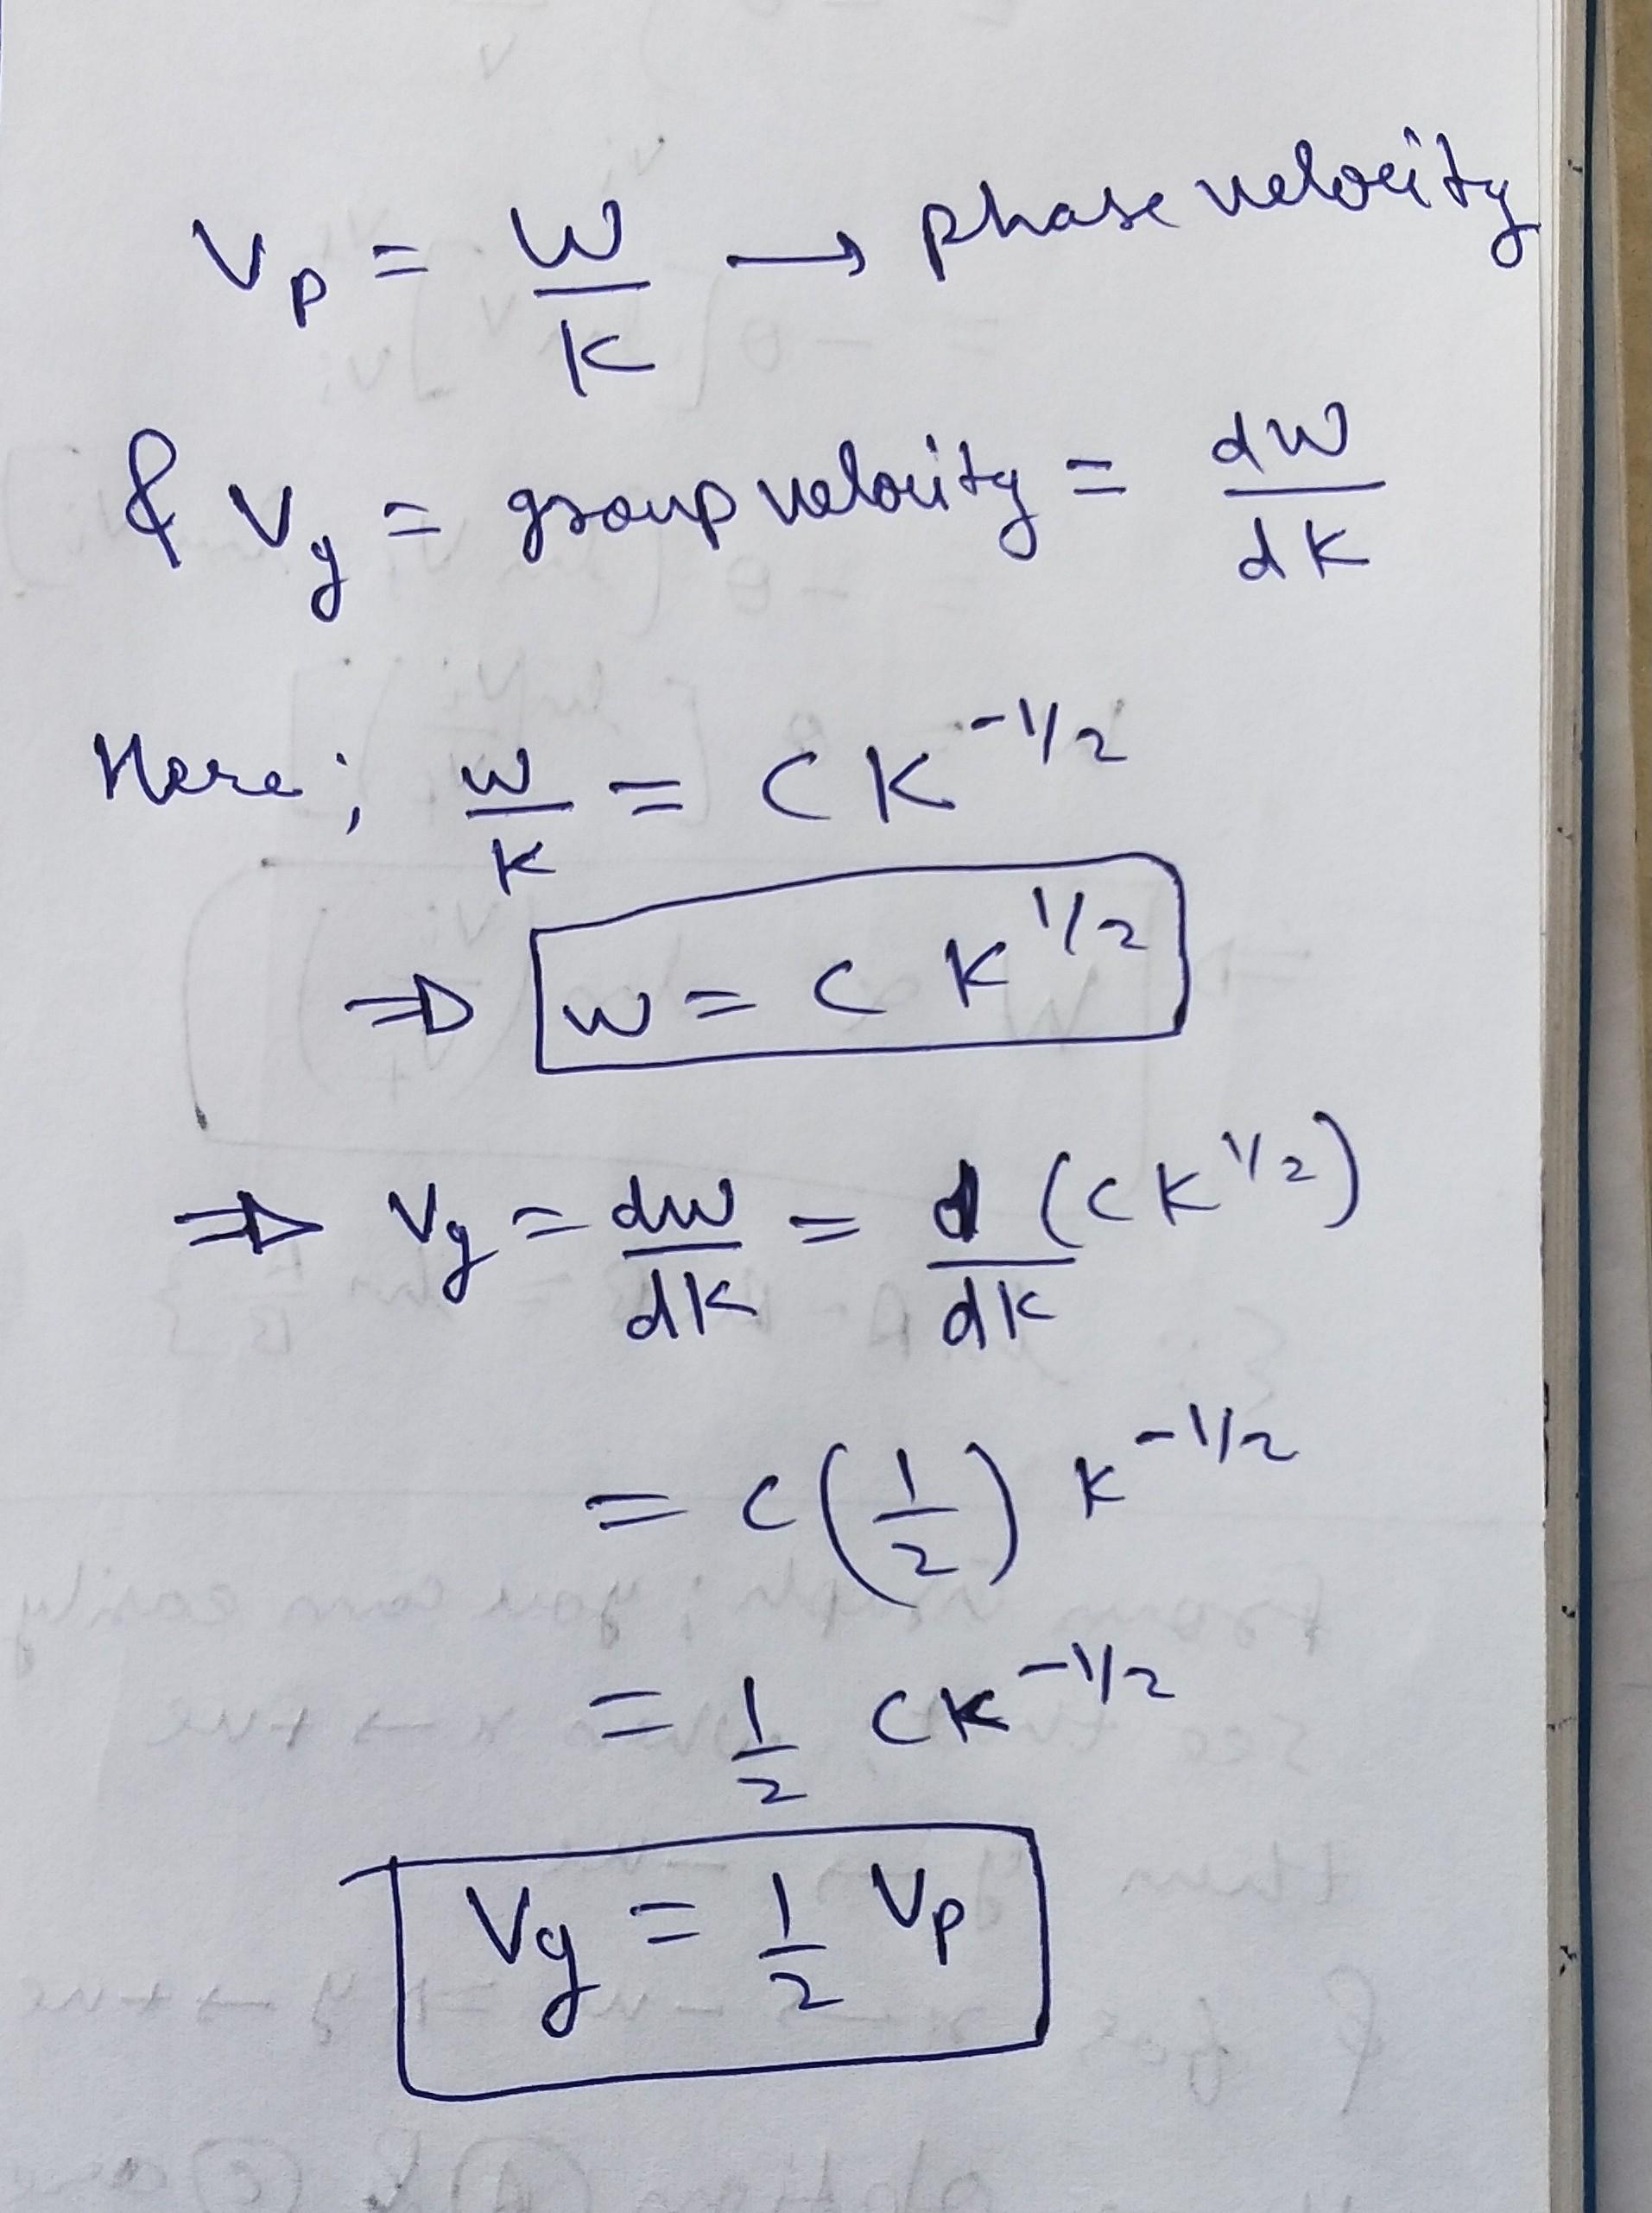 Vp = W/K → phase velocity
& Vg = group velocity = dw/dK
Here; w/K = CK^-1/2
⇒ w = C K^1/2
⇒ Vg = dw/dK = d/dK (CK^1/2)
= C(1/2) K^-1/2
= 1/2 CK^-1/2
Vg = 1/2 Vp